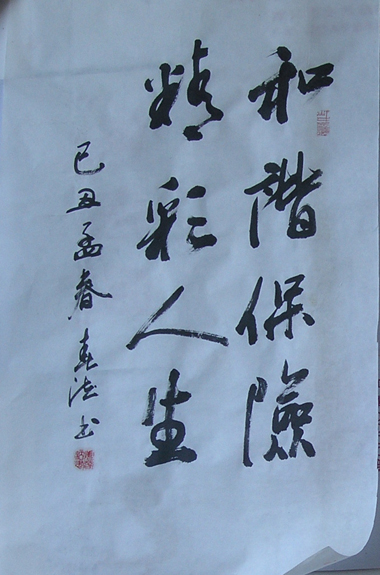 和谐保險
精彩人生
己丑孟春 书